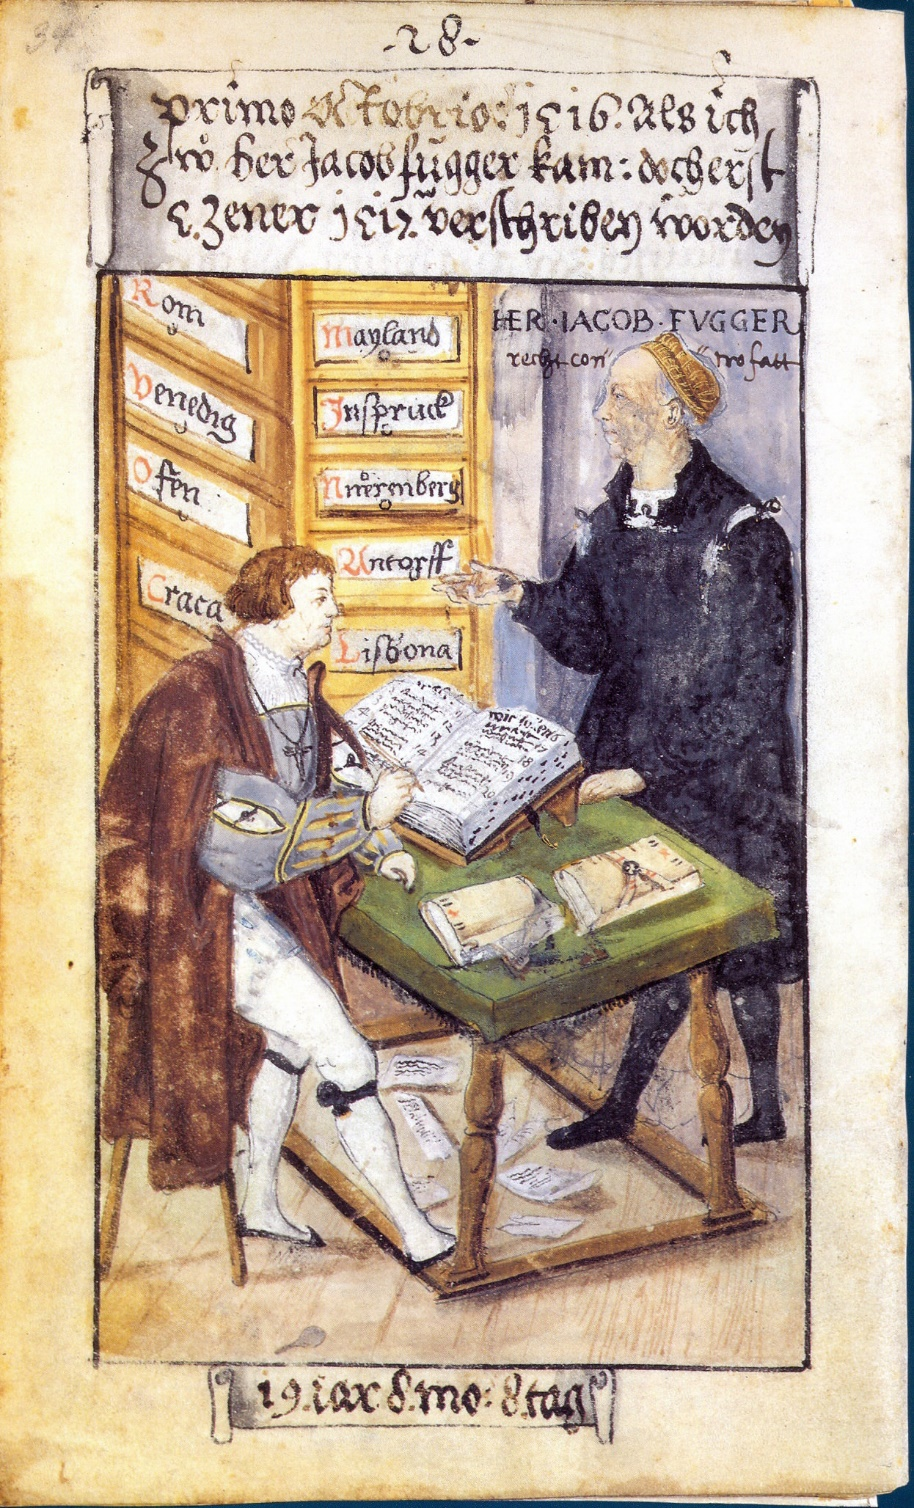 ·28·
primo octobrio: 1516. Als ich
zuo her Jacob fugger kam: doch erst
5. Zener 1517 verschriben worden
Rom
Venedig
Ofen
Craca
Mayland
Jnspruck
Nuerenberg
Antorff
Lisbona
HER · IACOB · FVGGER
recht con tro fatt
19. iar 8. mo: 8. tag